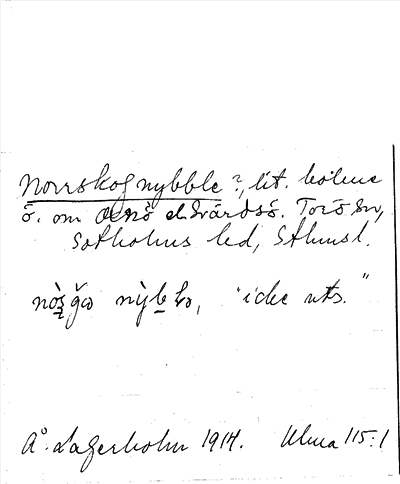 Norrskognybble ?, lit. holme
ö. om Oxnö el. Svärdsö. Torö sn,
Sotholms hd, Sthmsl.
"icke uts."
Å. Lagerholm 1914. Ulma 115:1